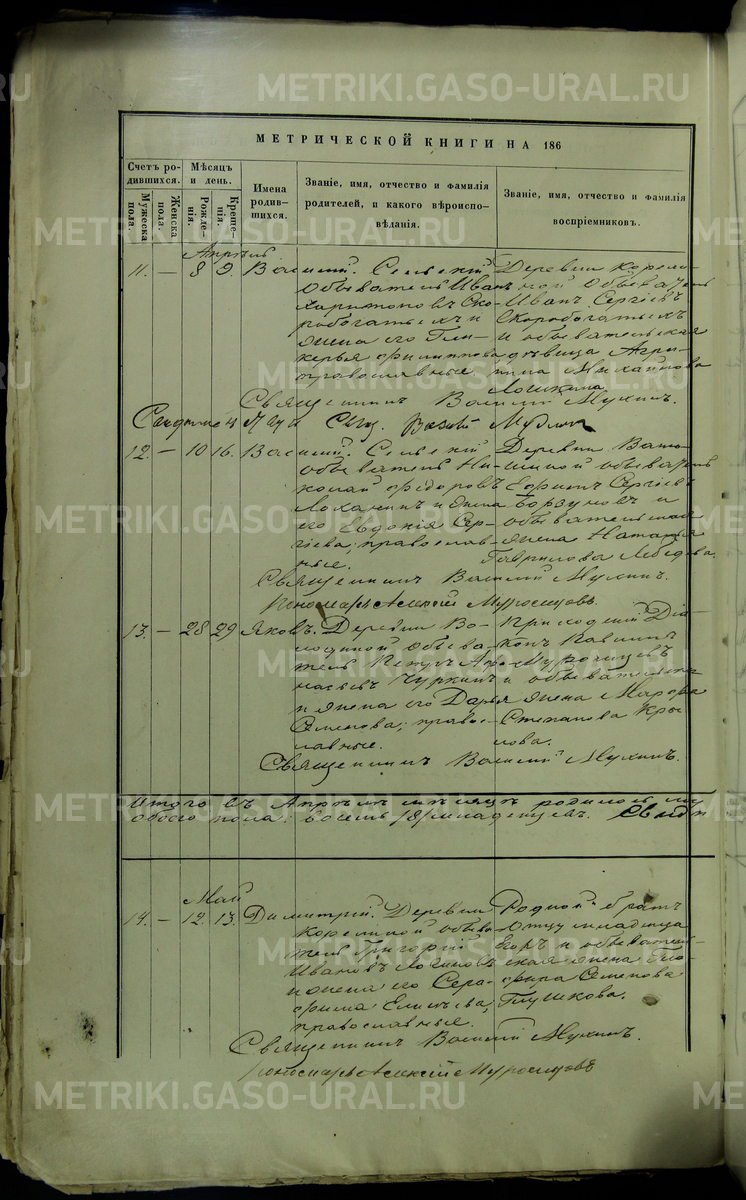 METRIKI.GASO-URAL.RU
МЕТРИЧЕСКОЙ КНИГИ НА 186
Счетъ родившихся.
Мужеска пола.
Женска пола.
Мѣсяцъ и день.
Рожденія.
Крещенія.
Имена родившихся.
Званіе, имя, отчество и фамилія родителей, и какого вѣроисповѣданія.
Званіе, имя, отчество и фамилія воспріемниковъ.
Апрѣль
11. — 8 9. Василій.
Сельскій
обыватель Иванъ
Харитоновъ Ско-
робогатыхъ и
жена его Гли-
керья Филиппова
православные.
Деревни Корели-
ной обыватель
Иванъ Сергіевъ
Скоробогатыхъ
и обывательская
дѣвица Агри-
пина Михайлова
Лошкина.
Священникъ Василій Мухинъ.
12. — 10 16. Василій.
Сельскій
обыватель Ни-
колай Федоровъ
и жена
его Евдокія Сер-
гіева, православ-
ные.
Деревни
обыватель
Ефимъ Сергіевъ
Борзуновъ и
обывательская
жена Наталья
Гаврилова Лебедева.
Священникъ Василій Мухинъ.
Пономарь Алексій
13. — 28 29 Яковъ.
Деревни Во-
лодиной обыва-
тель Петръ Афо-
насьевъ Чуркинъ
и жена его Дарья
Семенова; право-
славные.
Приходскій Діа-
конъ
и обывательская
жена Марфа
Степанова Кры-
лова.
Священникъ Василій Мухинъ.
Итого въ Апрѣлѣ мѣсяцѣ родилось
обоего пола: восемь /8/ младенцевъ.
Май
14. — 12. 13. Димитрій.
Деревни
Корелиной обыва-
тель Григорій
Ивановъ Логиновъ
и жена его Сера-
фима
православные.
Родной братъ
отцу младенца
Егоръ и обыватель-
ская жена Гла-
фира Семенова
Глушкова.
Священникъ Василій Мухинъ.
Пономарь Алексій